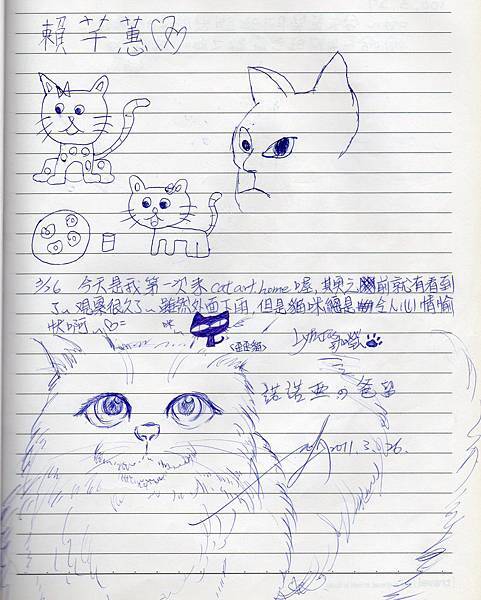 賴芊蕙
3/26 今天是我第一次來cat art home喔,其實之前就有看到
了~觀察很久了~雖然外面下雨,但是貓咪總是令人心情愉
快啊
諾諾亞の爸留
2011.3.26.